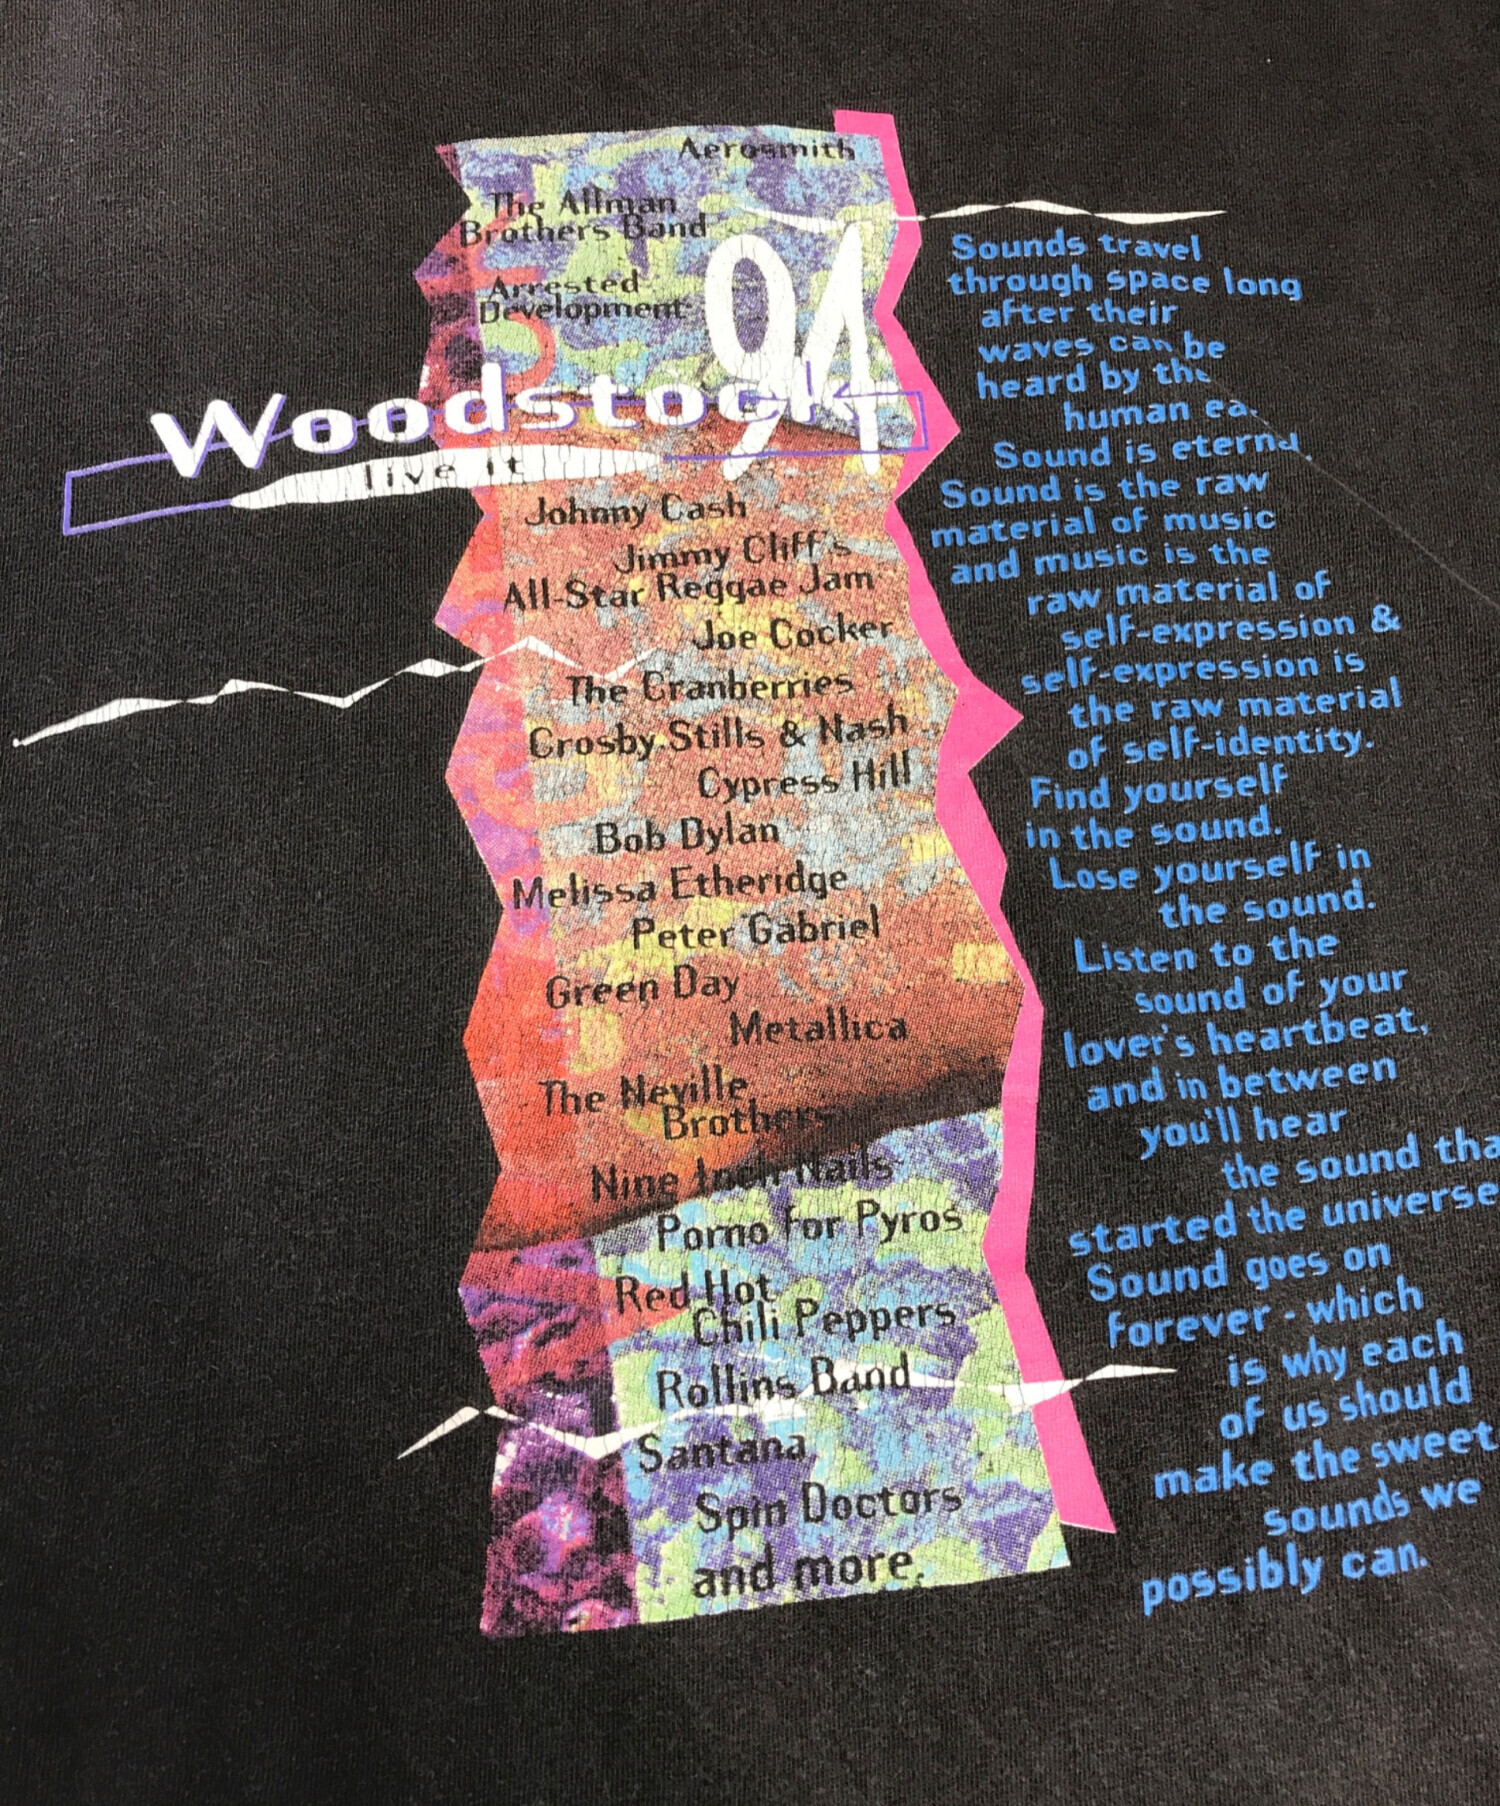 Aerosmith
The Allman
Brothers Band
Arrested
Development
94
Woodstock
live it
Johnny Cash
Jimmy Cliff's
All-Star Reggae Jam
Joe Cocker
The Cranberries
Crosby Stills & Nash
Cypress Hill
Bob Dylan
Melissa Etheridge
Peter Gabriel
Green Day
Metallica
The Neville
Brothers
Nine Inch Nails
Porno for Pyros
Red Hot
Chili Peppers
Rollins Band
Santana
Spin Doctors
and more.
Sounds travel
through space long
after their
waves can be
heard by the
human
Sound is
Sound is the raw
material of music
and music is the
raw material of
self-expression &
self-expression is
the raw material
of self-identity.
Find yourself
in the sound.
Lose yourself in
the sound.
Listen to the
sound of your
lover's heartbeat,
and in between
you'll hear
the sound tha
started the universe
Sound goes on
forever - which
is why each
of us should
make the sweet
sounds we
possibly can.